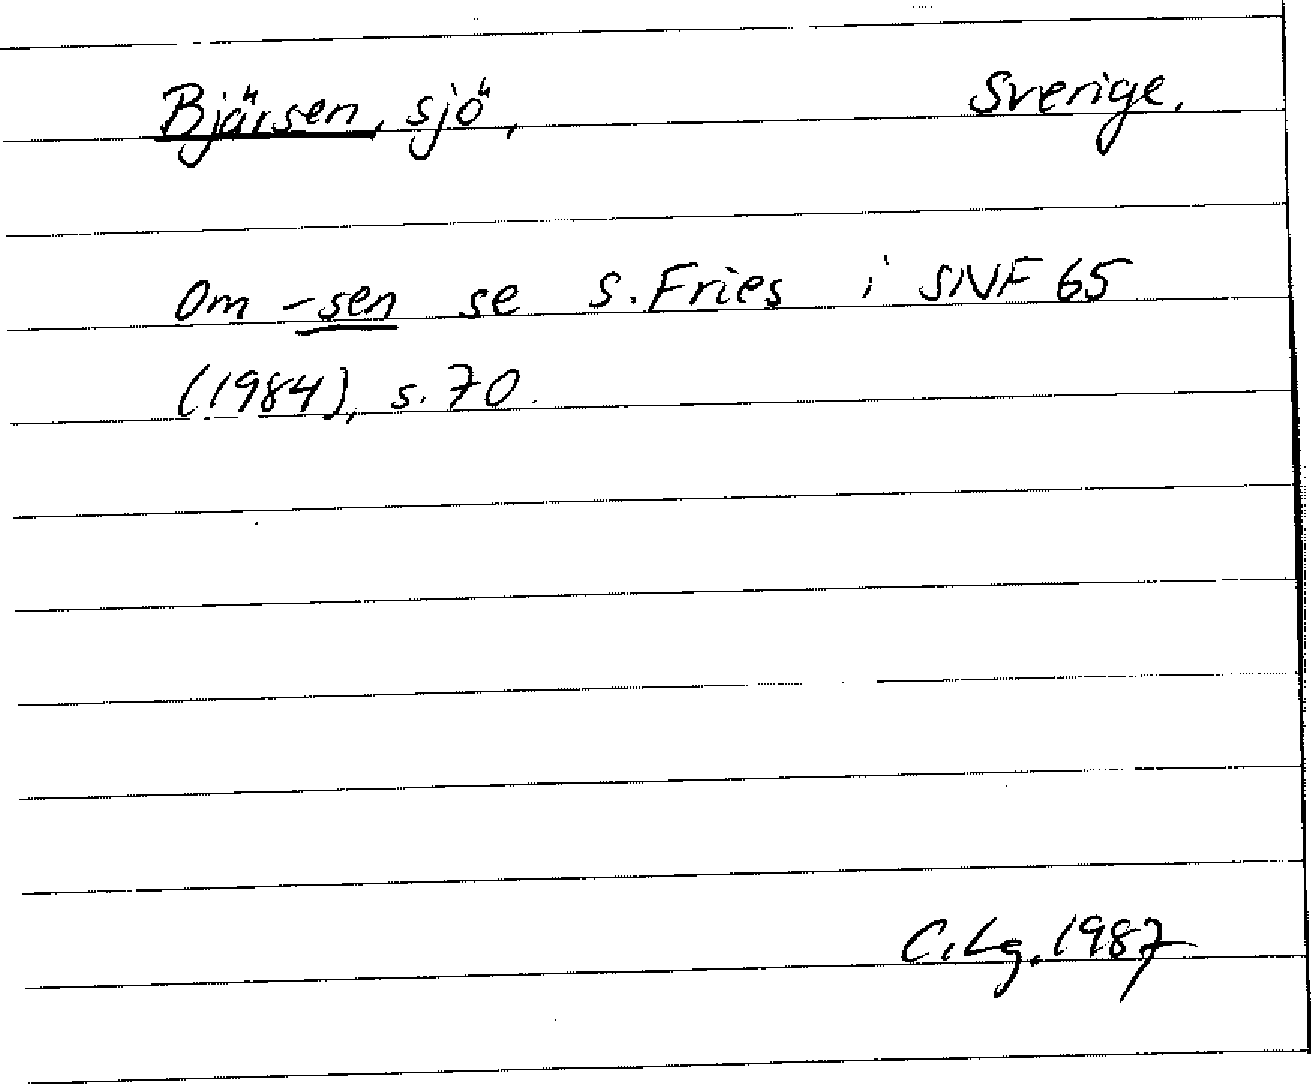 Bjärsen, sjö, Sverige.
Om -sen se S. Fries i SNF 65
(1984), s. 70.
C. Lg. 1987